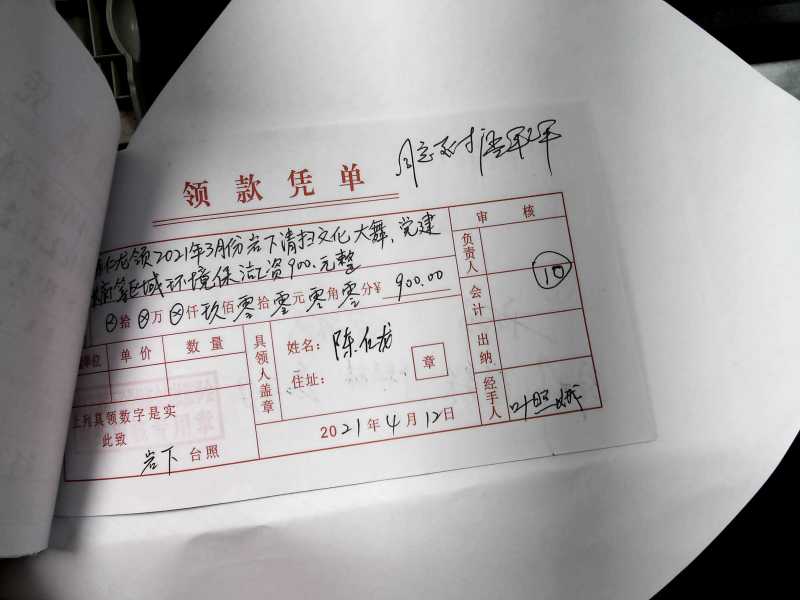 同意支付
领款凭单
仁龙领2021年3月份岩下清扫文化大舞,党建
等区域环境保洁工资900.元整
⊗拾⊗万⊗仟玖佰零拾零元零角零分¥ 900.00
审核
负责人
⑩
会计
出纳
经手人 叶照娥
单位 单价 数量
具领人盖章
姓名: 陈仁龙
住址:
章
上列具领数字是实
此致
岩下 台照
2021年4月12日